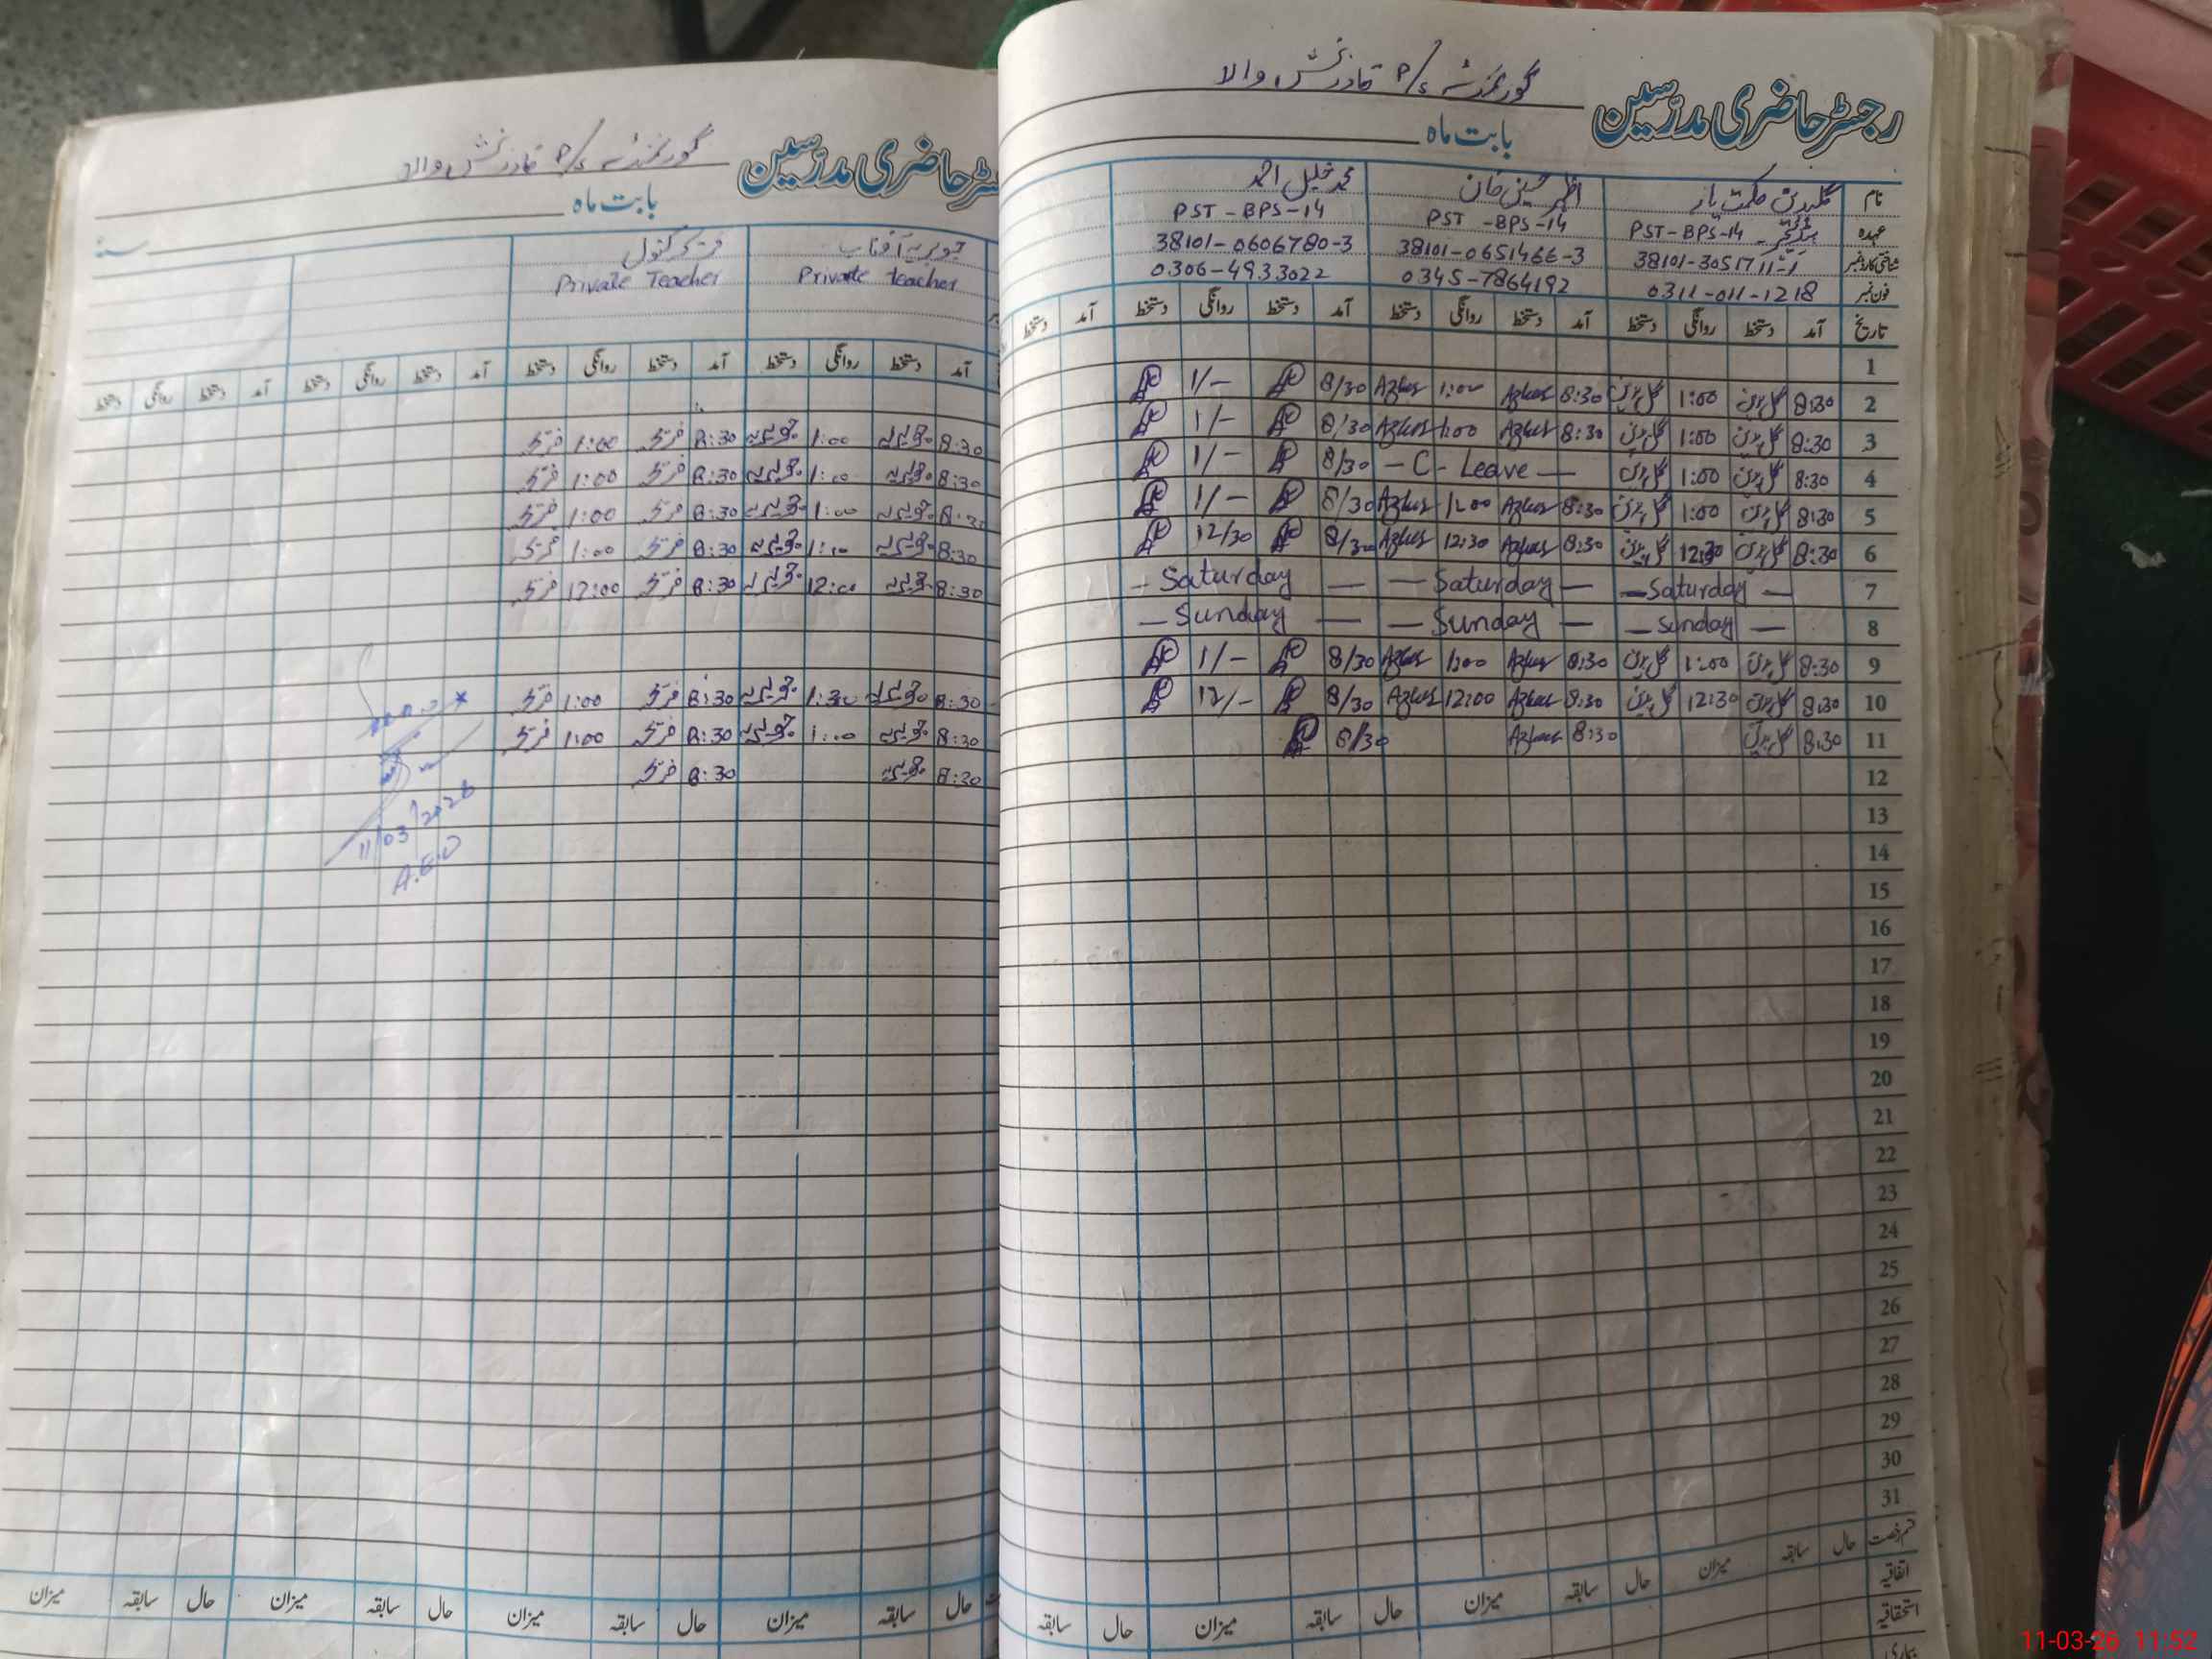 رجسٹر حاضری مدرسین گورنمنٹ P/S قادر بخش والا
بابت ماہ
نام گلبدین حکمت یار اظہر حسین خان محمد خلیل احمد
عہدہ ہیڈ ٹیچر - PST-BPS-14 PST-BPS-14 PST-BPS-14
شناختی کارڈ نمبر 38101-0651466-3 38101-0606780-3
فون نمبر 0311-011-1218 0345-7864192 0306-4933022
تاریخ آمد دستخط روانگی دستخط آمد دستخط روانگی دستخط آمد دستخط روانگی دستخط آمد دستخط
1
2 8:30 گلبدین 1:00 گلبدین 8:30 Azhar 1:00 Azhar 8/30 1/-
3 8:30 گلبدین 1:00 گلبدین 8:30 Azhar 1:00 Azhar 8/30 1/-
4 8:30 گلبدین 1:00 گلبدین — C - Leave — 8/30 1/-
5 8:30 گلبدین 1:00 گلبدین 8:30 Azhar 1:00 Azhar 8/30 1/-
6 8:30 گلبدین 12:30 گلبدین 8:30 Azhar 12:30 Azhar 8/30 12/30
7 — Saturday — — Saturday — — Saturday —
8 — Sunday — — Sunday — — Sunday —
9 8:30 گلبدین 1:00 گلبدین 8:30 Azhar 1:00 Azhar 8/30 1/-
10 8:30 گلبدین 12:30 گلبدین 8:30 Azhar 12:00 Azhar 8/30 12/-
11 8:30 گلبدین 8:30 Azhar 8/30
12
13
14
15
16
17
18
19
20
21
22
23
24
25
26
27
28
29
30
31
قسم رخصت حال سابقہ میزان حال سابقہ میزان حال سابقہ میزان حال سابقہ
اتفاقیہ
استحقاقیہ
بیماری
رجسٹر حاضری مدرسین گورنمنٹ P/S قادر بخش والا
بابت ماہ سنہ
جویریہ آفتاب کنول
Private teacher Private Teacher
آمد دستخط روانگی دستخط آمد دستخط روانگی دستخط آمد دستخط روانگی دستخط آمد دستخط روانگی دستخط
8:30 جویریہ 1:00 جویریہ 8:30 1:00
8:30 جویریہ 1:00 جویریہ 8:30 1:00
8:30 جویریہ 1:00 جویریہ 8:30 1:00
8:30 جویریہ 1:00 جویریہ 8:30 1:00
8:30 جویریہ 12:00 جویریہ 8:30 12:00
8:30 جویریہ 1:30 جویریہ 8:30 1:00
8:30 جویریہ 1:00 جویریہ 8:30 1:00
8:30 جویریہ 8:30
11/03/2026
A.E.O
حال سابقہ میزان حال سابقہ میزان حال سابقہ میزان حال سابقہ میزان
11-03-26 11:52